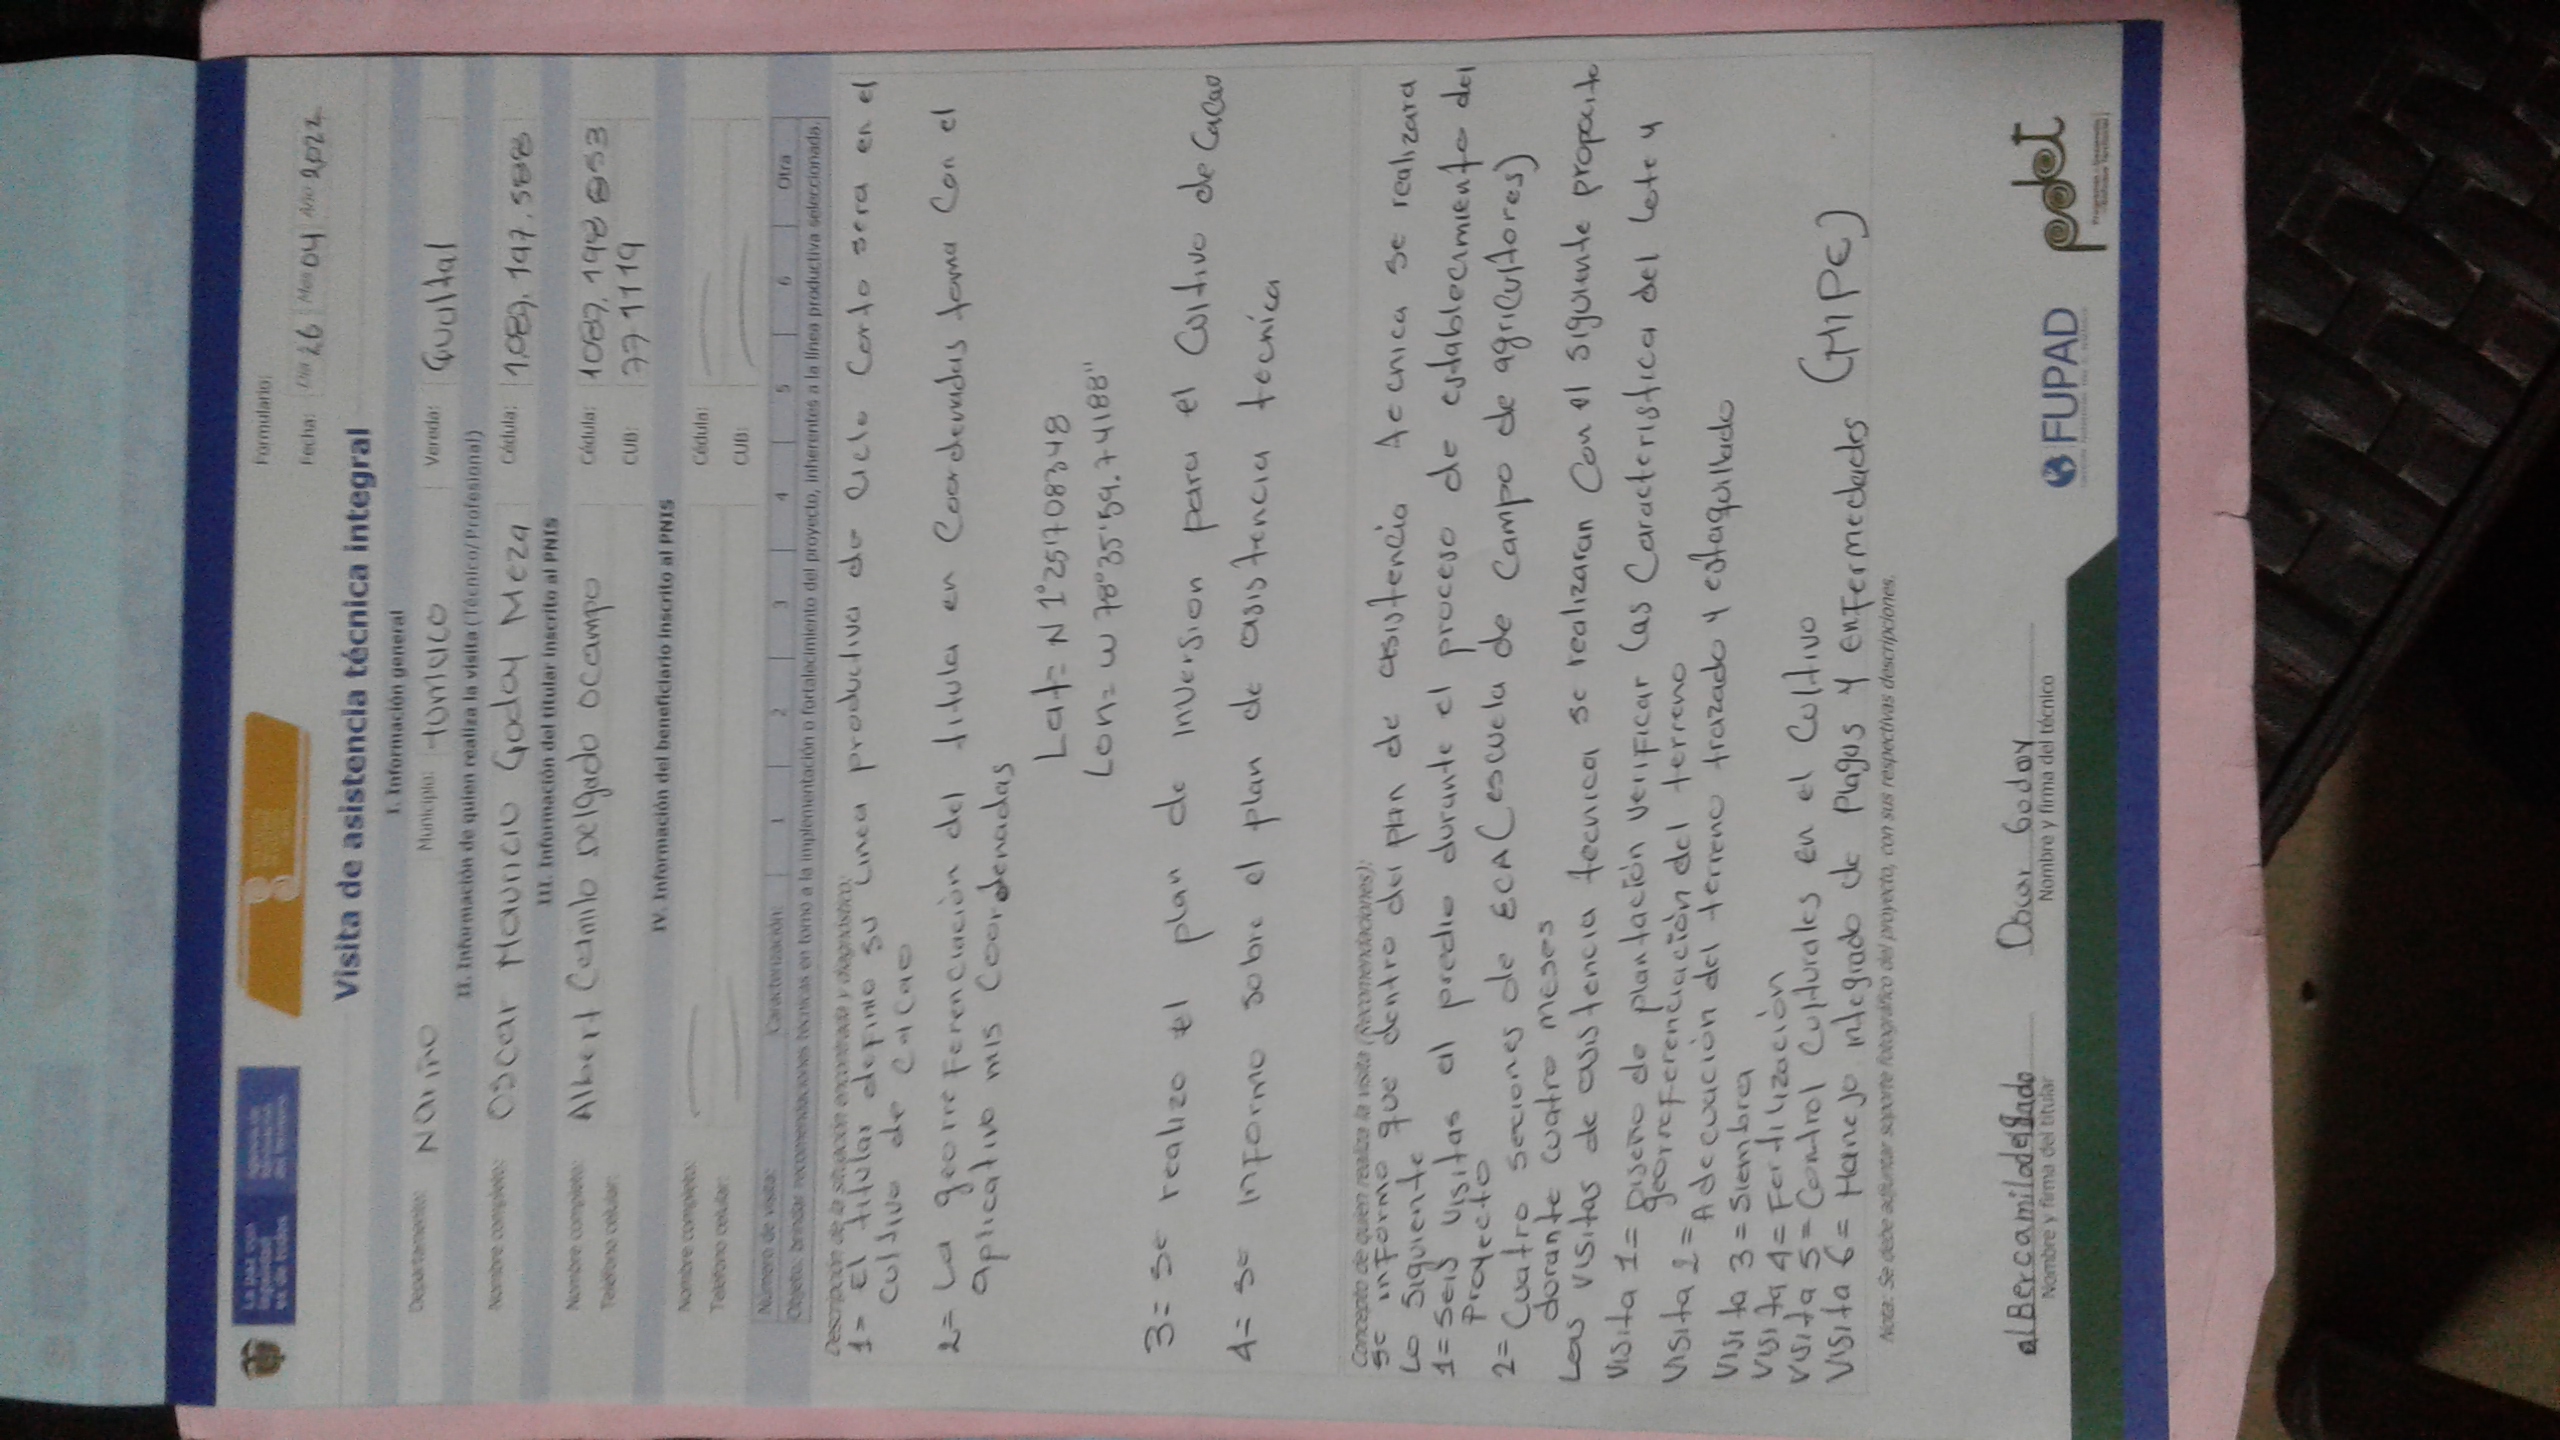 La paz con
legalidad
es de todos
Formulario:
Fecha: Día 26 Mes 04 Año 2022
Visita de asistencia técnica integral
I. Información general
Departamento: Nariño Municipio: tumaco Vereda: Gualtal
II. Información de quien realiza la visita (Técnico/Profesional)
Nombre completo: Oscar Mauricio Godoy Meza Cédula: 1.089.147.588
III. Información del titular inscrito al PNIS
Nombre completo: Albert Camilo Delgado Ocampo Cédula: 1089.198 853
Teléfono celular: CUB: 771119
IV. Información del beneficiario inscrito al PNIS
Nombre completo: Cédula:
Teléfono celular: CUB:
Número de visita: Caracterización: 1 2 3 4 5 6 Otra
Objeto: brindar recomendaciones técnicas en torno a la implementación o fortalecimiento del proyecto, inherentes a la línea productiva seleccionada.
Descripción de la situación encontrada y diagnóstico:
1= El titular definio su Linea productiva de ciclo Corto sera en el
Cultivo de Cacao
2= La georreferenciación del titula en Coordenadas toma Con el
aplicativo mis Coordenadas
Lat= N 1°25'1708348
Lon= W 78°35'59.74188"
3= se realizo el plan de inversion para el Cultivo de Cacao
4= se informo sobre el plan de asistencia tecnica
Concepto de quien realiza la visita (Recomendaciones):
se informo que dentro del plan de asistencia tecnica se realizara
Lo siguiente
1= Seis visitas al predio durante el proceso de establecimiento del
Proyecto
2= Cuatro secciones de ECA (escuela de Campo de agricultores)
durante cuatro meses
Las visitas de asistencia tecnica se realizaran Con el siguiente proposito
Visita 1= Diseño de plantación verificar las Caracteristica del Lote y
georreferenciación del terreno
Visita 2= Adecuacion del terreno trazado y estaquillado
Visita 3= Siembra
Visita 4= Fertilización
Visita 5= Control Culturales en el Cultivo
Visita 6= Manejo integrado de Plagas y enfermedades (MIPE)
Nota: Se debe adjuntar soporte fotográfico del proyecto, con sus respectivas descripciones.
alBercamilodelgado Oscar Godoy
Nombre y firma del titular Nombre y firma del técnico
FUPAD
pdet